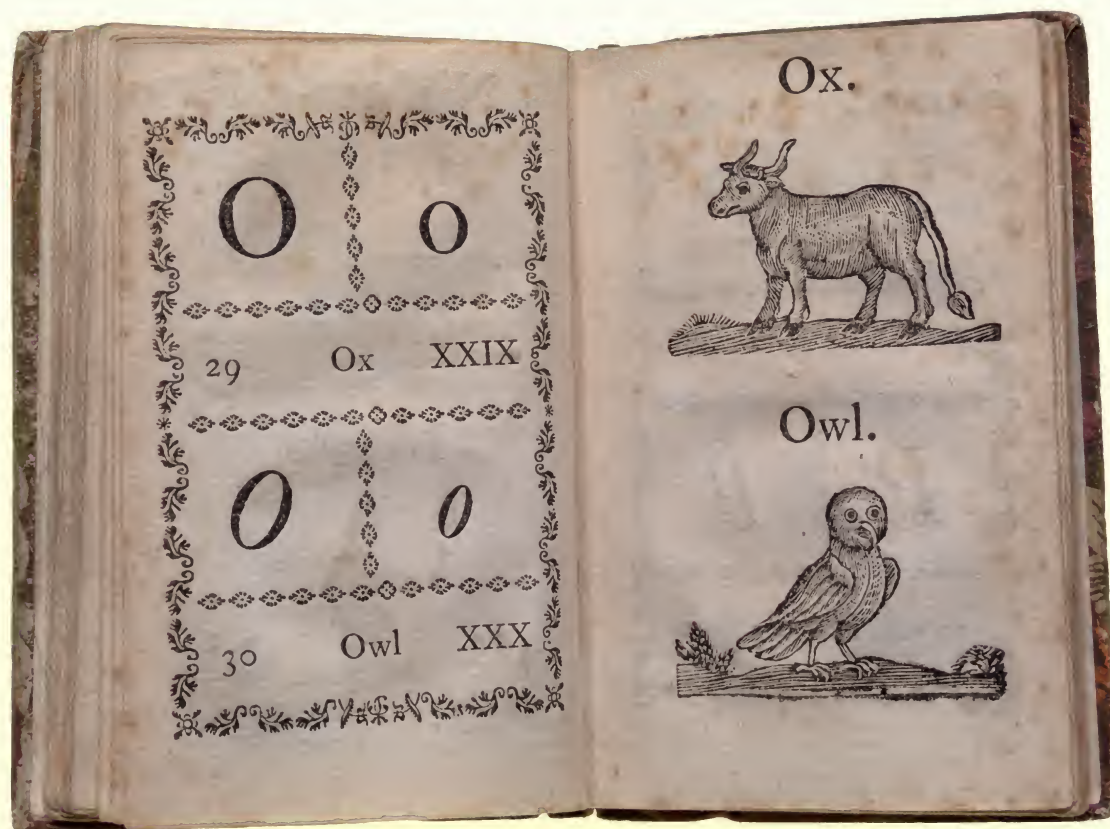 O o
29 Ox XXIX
O o
30 Owl XXX
Ox.
Owl.